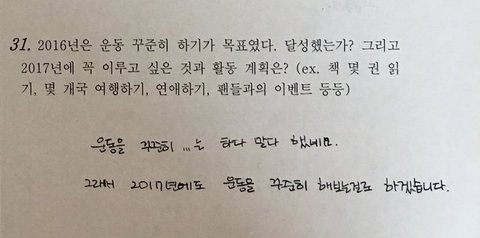 31. 2016년은 운동 꾸준히 하기가 목표였다. 달성했는가? 그리고
2017년에 꼭 이루고 싶은 것과 활동 계획은? (ex. 책 몇 권 읽
기, 몇 개국 여행하기, 연애하기, 팬들과의 이벤트 등등)
운동을 꾸준히 ...는 하다 말다 했네요.
그래서 2017년에도 운동을 꾸준히 해보는걸로 하겠습니다.